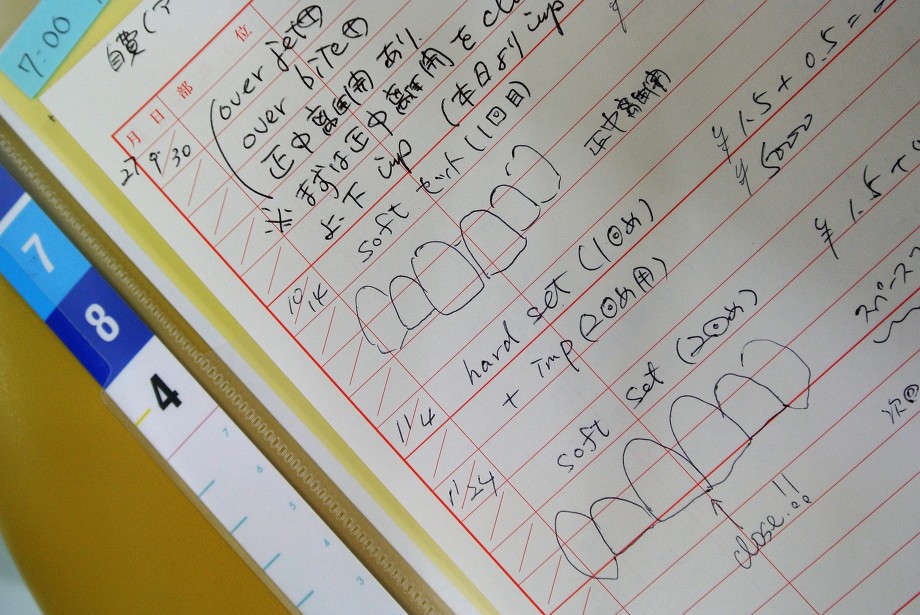 7:00
自費(ア
月 日 部 位
27 9/30
over jet⊕
over bite⊕
正中離開 あり.
※ まずは正中離開 を clo
上下 imp (本日より imp
soft セット(1回目)
正中離開
10/14
¥1.5 + 0.5 =
¥5000
hard set (1回め)
+ imp (2回め用)
¥1.5 +
11/4
soft set (2回め)
スペース
次回
11/24
close!!
7
8
4
7
6
5
4
3